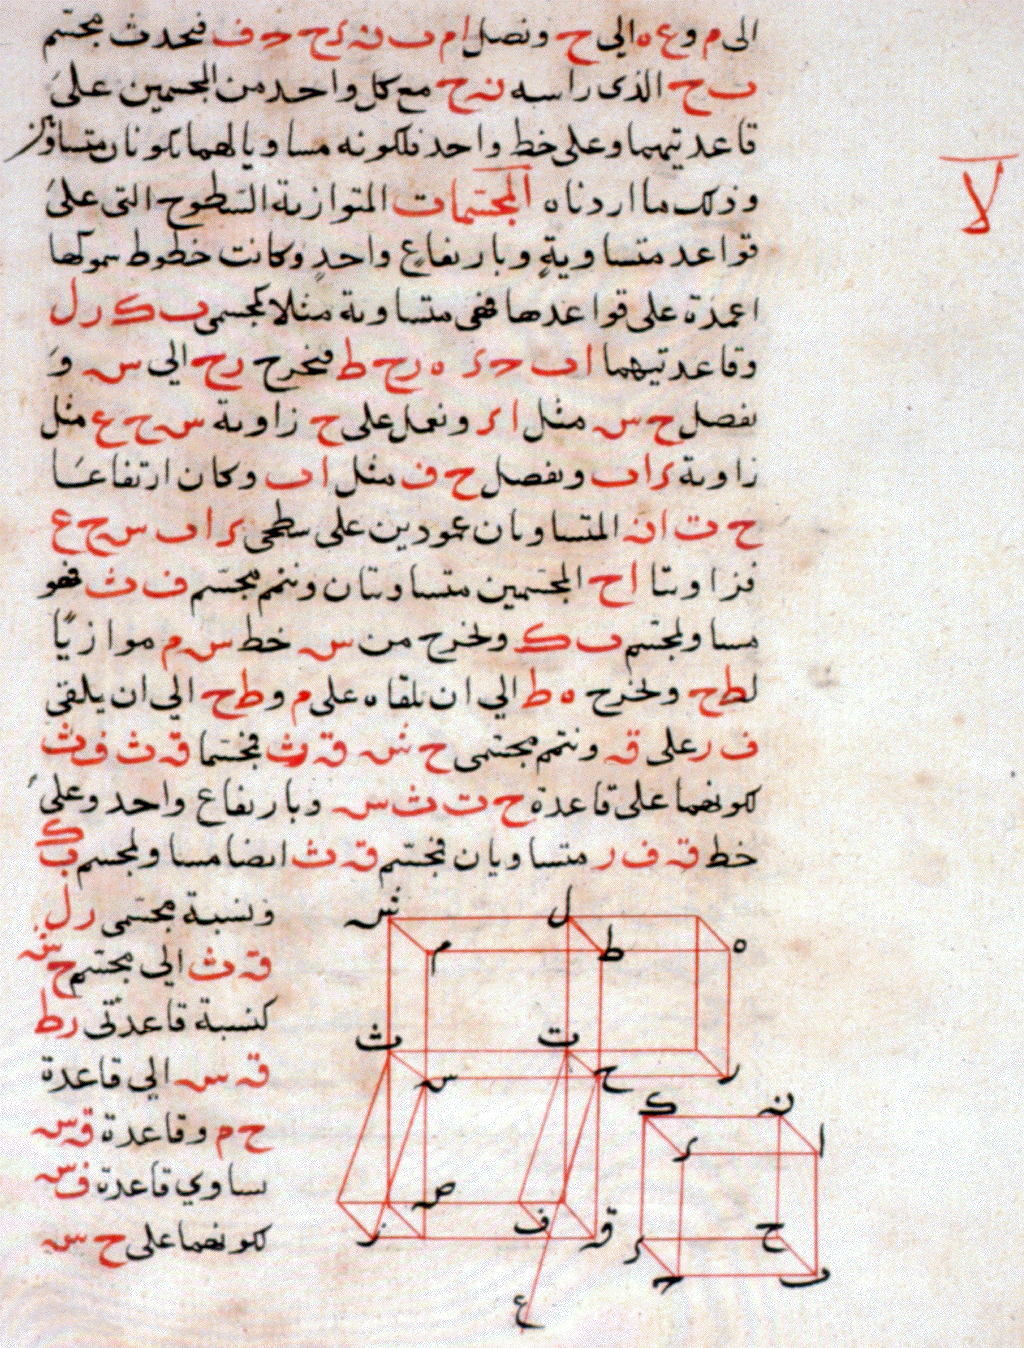 الى م و ع ه الى ح ونصل ا م ب ن ك ح ح ف فيحدث مجسم
ب ح الذى راسه ن ح مع كل واحد من المجسمين على
قاعدتيهما وعلى خط واحد فلكونه مساويا لهما يكونان متساويين
وذلك ما اردناه المجسمات المتوازية السطوح التى على
لا
قواعد متساوية وبارتفاع واحد وكانت خطوط سموكها
اعمدة على قواعدها فهى متساوية مثلا كمجسمى ب ك ر ل
وقاعدتيهما ا ب ح د ه ر ح ط فنخرج ر ح الى س و
نفصل ح س مثل ا د ونعمل على ح زاوية س ح ع مثل
زاوية د ا ب ونفصل ح ف مثل ا ب وكان ارتفاعا
ح ت ا ن المتساويان عمودين على سطحى د ا ب س ح ع
فزاويتا ا ح المجسمين متساويتان ونتمم مجسم ف ث فهو
مساو لمجسم ب ك ونخرج من س خط س م موازيا
لطح ونخرج ه ط الى ان يلقاه على م و ط ح الى ان يلقى
ف ر على ق ونتمم مجسمى ح ش ق ث فمجسما ق ث ف ث
لكونهما على قاعدة ح ت ث س وبارتفاع واحد وعلى
خط ق ف ر متساويان فمجسم ق ث ايضا مساو لمجسم ب ك
ونسبة مجسمى ر ل
ق ث الى مجسم ح ش
كنسبة قاعدتى ر ط
ق س الى قاعدة
ح م وقاعدة ق س
تساوي قاعدة ف س
لكونهما على ح س
ش ل
م ط ه
ث ت
س ح ر
ك ن
د ا
ص
ر ف ق
ح
د ح ب
ع